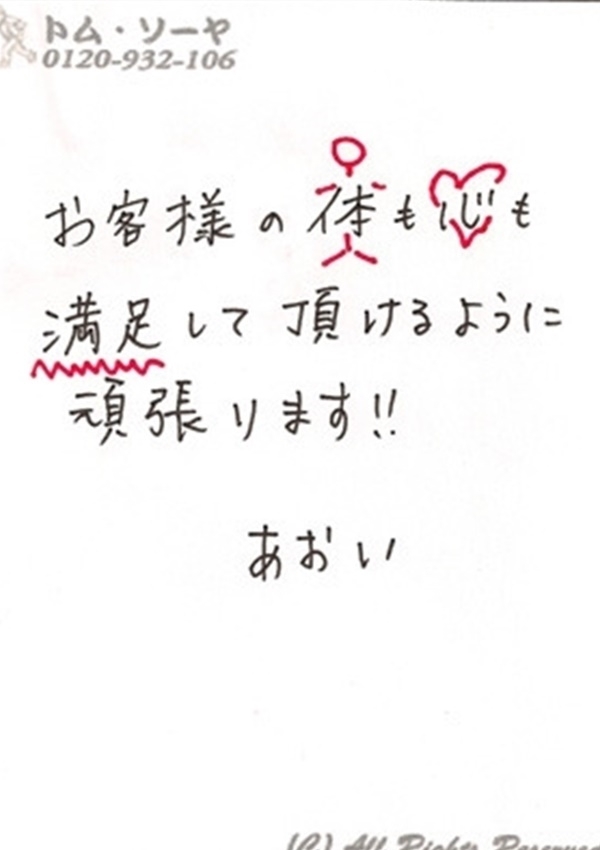 トム・ソーヤ
0120-932-106
お客様の体も心も
満足して頂けるように
頑張ります!!
あおい
(C) All Rights Reserved